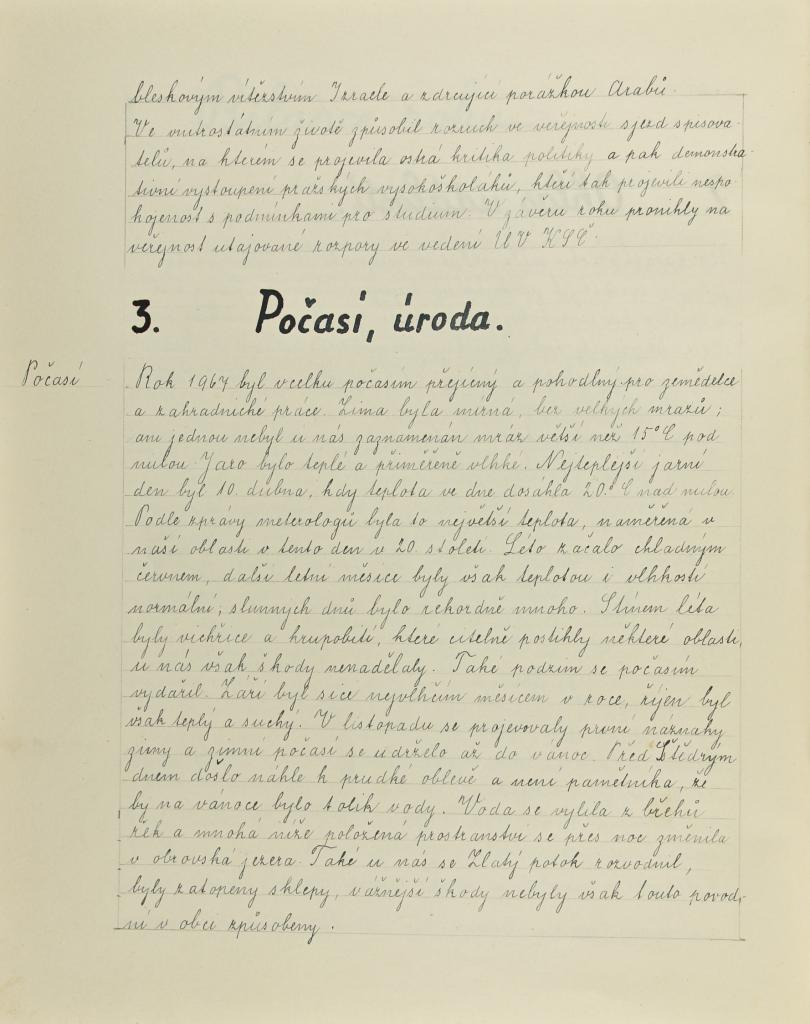 bleskovým vítězstvím Izraele a zdrcující porážkou Arabů.
Ve vnitrostátním životě způsobil rozruch ve veřejnosti sjezd spisova-
telů, na kterém se projevila ostrá kritika politiky a pak demonstra-
tivní vystoupení pražských vysokoškoláků, kteří tak projevili nespo-
kojenost s podmínkami pro studium. V závěru roku pronikly na
veřejnost utajované rozpory ve vedení ÚV KSČ.
3. Počasí, úroda.
Počasí
Rok 1967 byl vcelku počasím přejícný a pohodlný pro zemědelce
a zahradnické práce. Zima byla mírná, bez velkých mrazů;
ani jednou nebyl u nás zaznamenán mráz větší než 15°C pod
nulou. Jaro bylo teplé a přiměřeně vlhké. Nejteplejší jarní
den byl 10. dubna, kdy teplota ve dne dosáhla 20.°C nad nulou.
Podle zprávy meterologů byla to největší teplota, naměřená v
naší oblasti v tento den v 20. století. Léto začalo chladným
červnem, další letní měsíce byly však teplotou i vlhkostí
normální; slunných dnů bylo rekordně mnoho. Stínem léta
byly vichřice a krupobití, které citelně postihly některé oblasti,
u nás však škody nenadělaly. Také podzim se počasím
vydařil. Září byl sice nejvlhčím měsícem v roce, říjen byl
však teplý a suchý. V listopadu se projevovaly první náznaky
zimy a zimní počasí se udrželo až do vánoc. Před Štědrým
dnem došlo náhle k prudké oblevě a není pamětníka, že
by na vánoce bylo tolik vody. Voda se vylila z břehů
řek a mnohá níže položená prostranství se přes noc změnila
v obrovská jezera. Také u nás se Zlatý potok rozvodnil,
byly zatopeny sklepy, vážnější škody nebyly však touto povod-
ní v obci způsobeny.